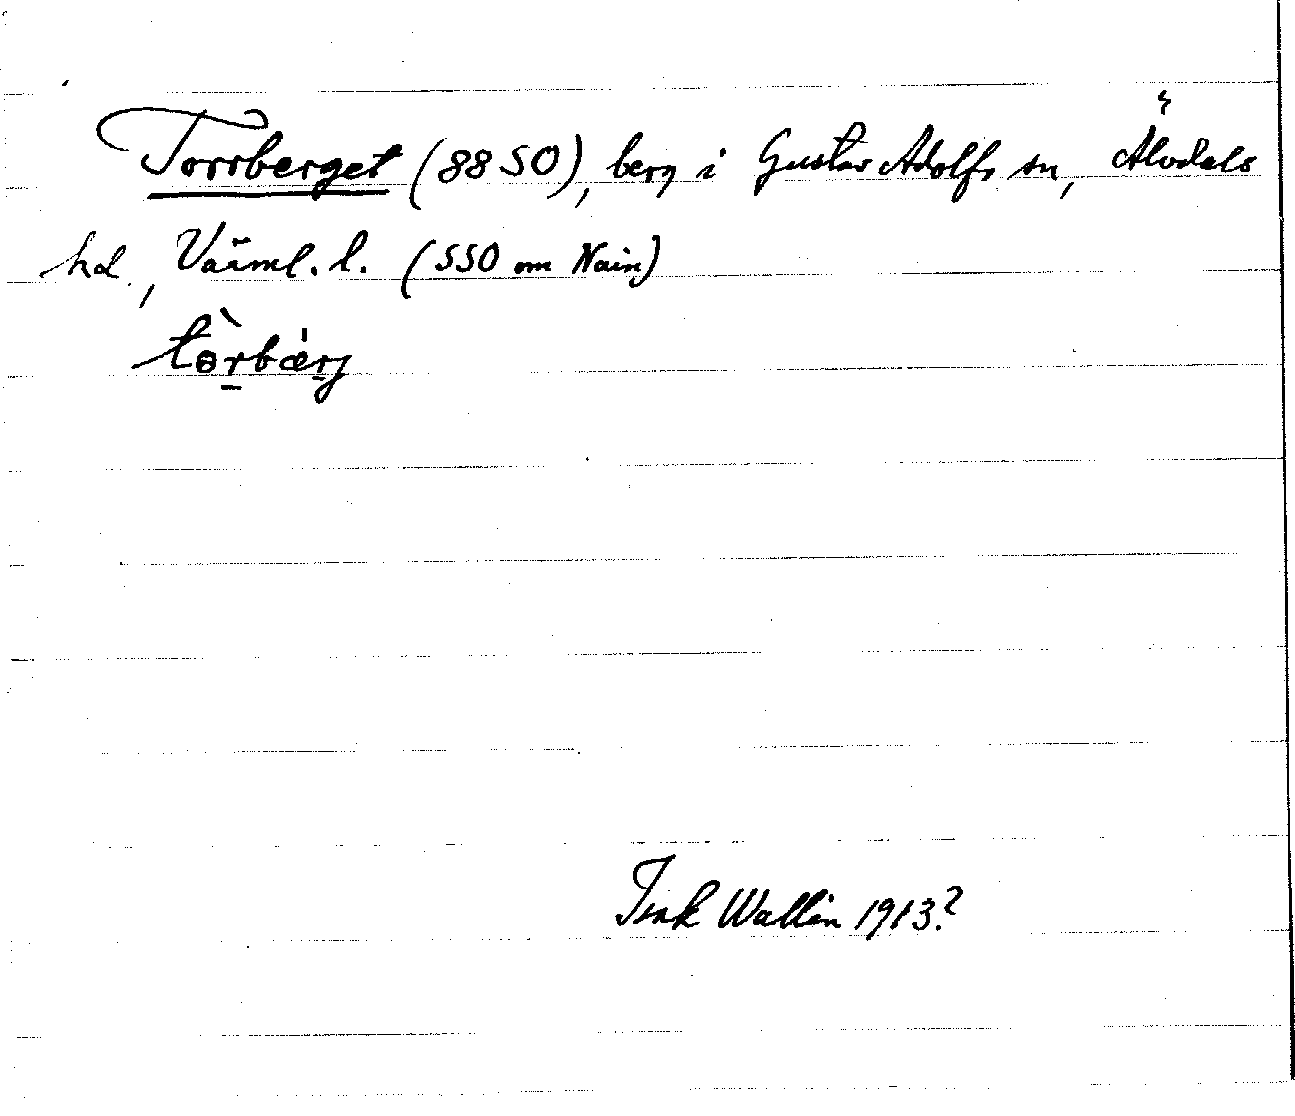 Torrberget (88SO), berg i Gustav Adolfs sn, Älvdals
hd., Värml. l. (SSO om Nain)
Isak Wallin 1913?